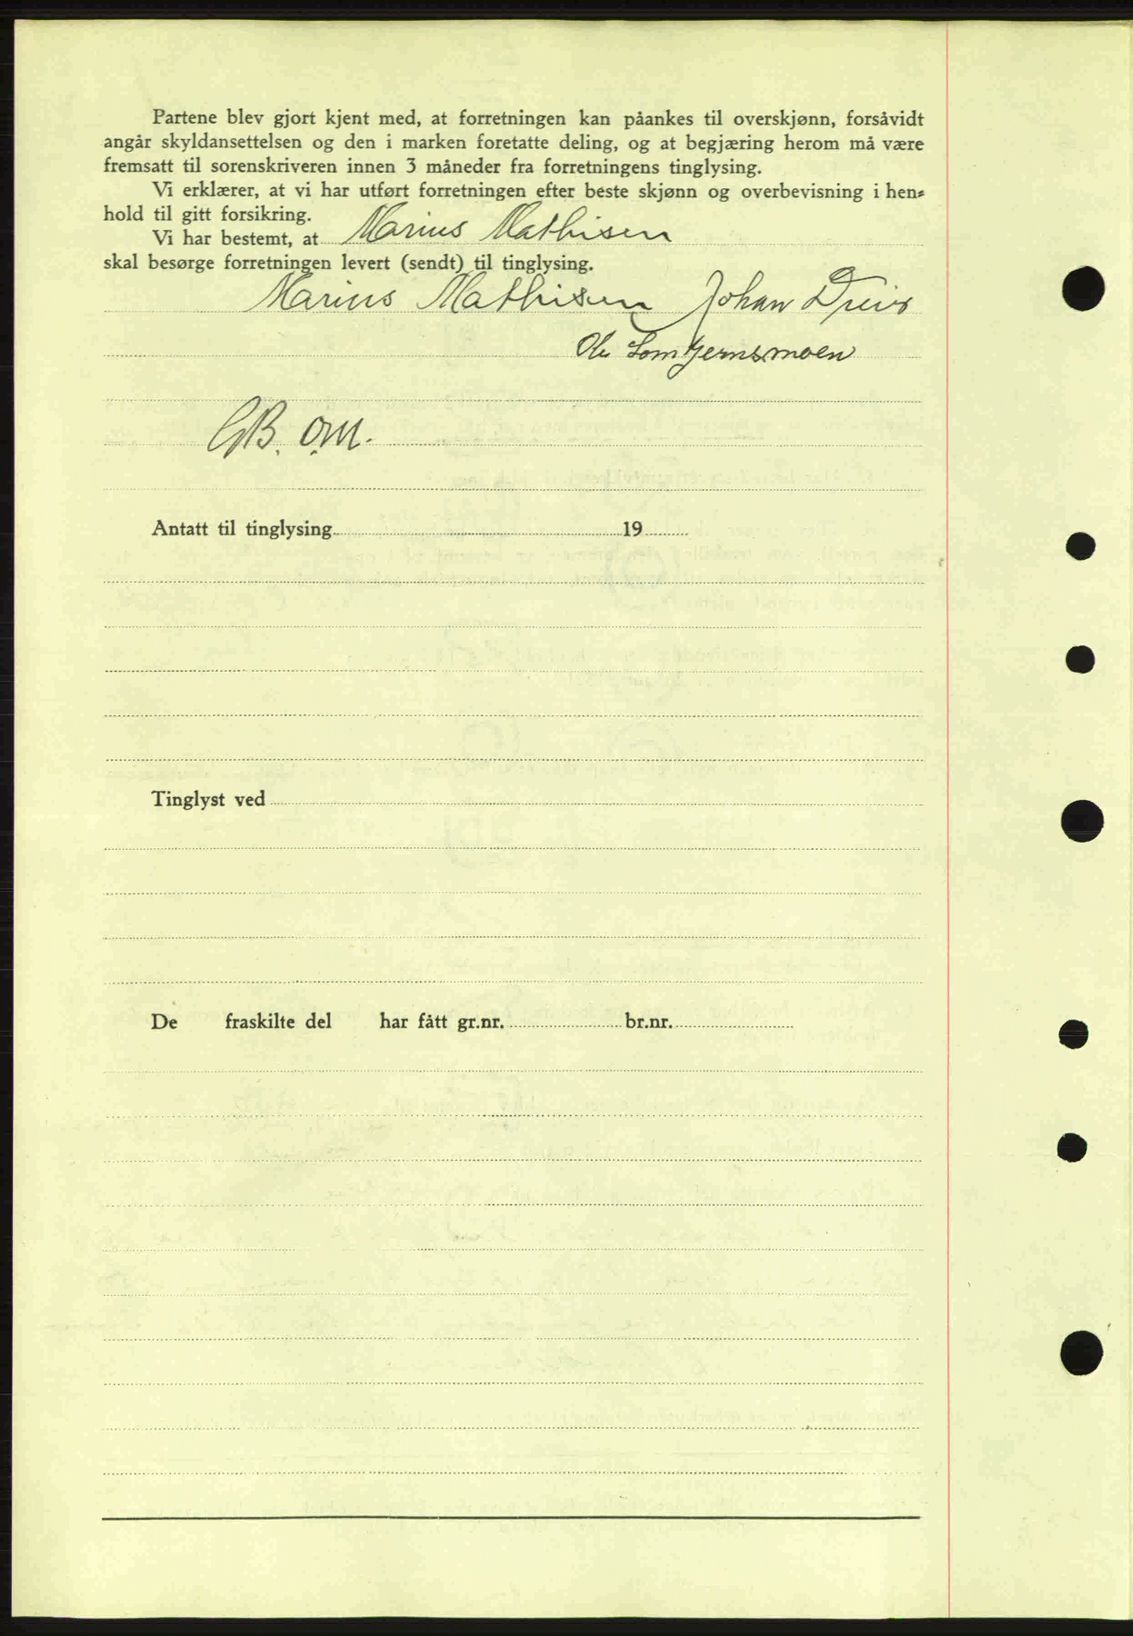 Partene blev gjort kjent med, at forretningen kan påankes til overskjønn, forsåvidt
angår skyldansettelsen og den i marken foretatte deling, og at begjæring herom må være
fremsatt til sorenskriveren innen 3 måneder fra forretningens tinglysing.
Vi erklærer, at vi har utført forretningen efter beste skjønn og overbevisning i hen-
hold til gitt forsikring.
Vi har bestemt, at Marius Mathisen
skal besørge forretningen levert (sendt) til tinglysing.
Marius Mathisen Johan
Ole
GB. OM.
Antatt til tinglysing 19
Tinglyst ved
De fraskilte del har fått gr.nr. br.nr.